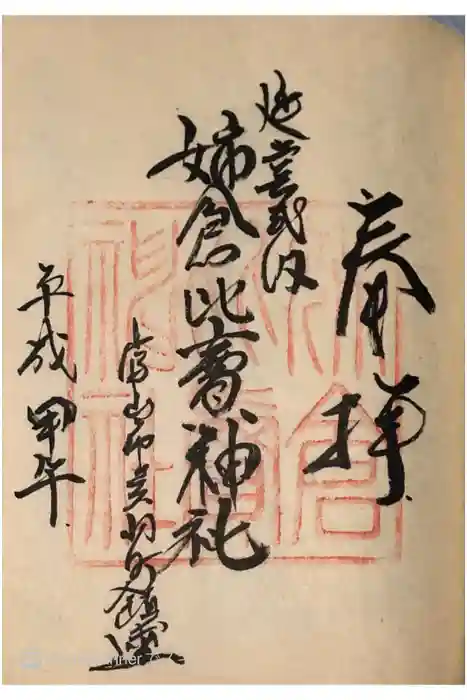 奉拝
延喜式内
姉倉比賣神社
富山市呉羽町鎮座
平成甲午
姉倉
比賣
神社